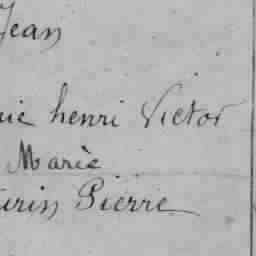 Jean
henri Victor
Marie
Pierre